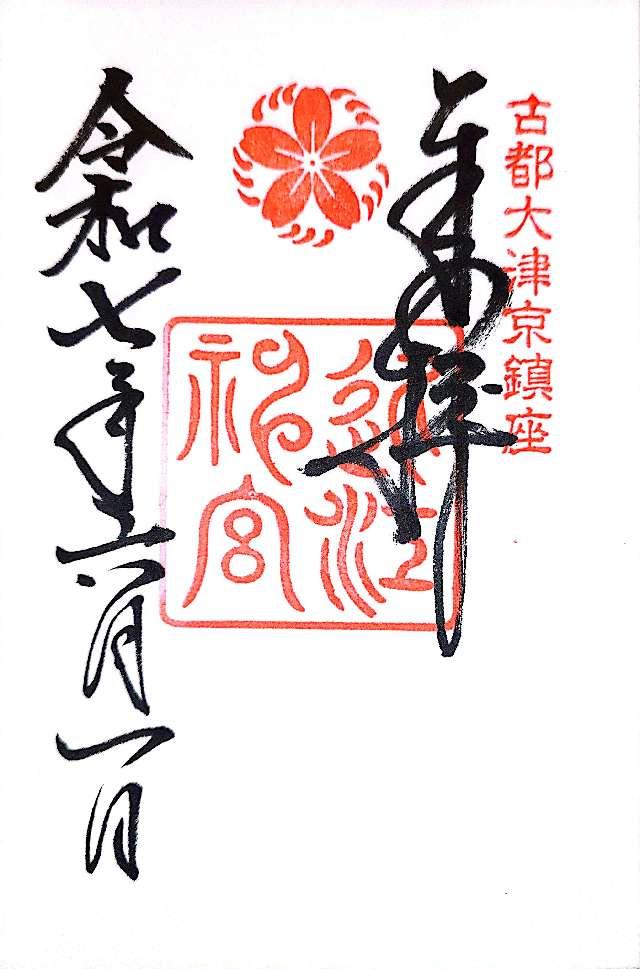 古都大津京鎮座
奉拝
近江
神宮
令和七年六月一日